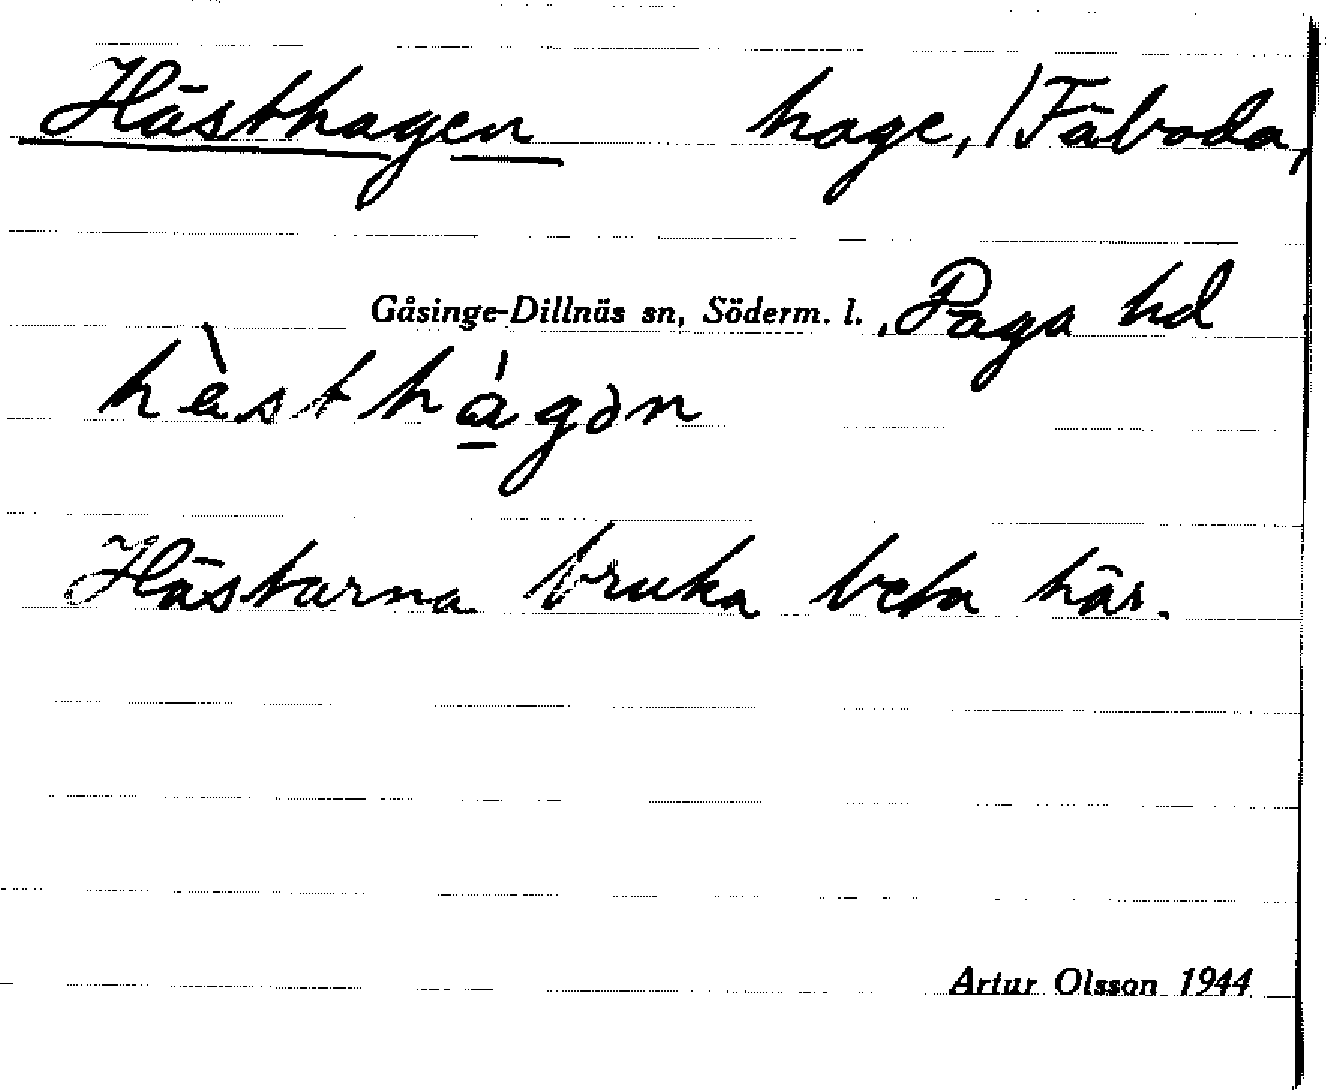 Hästhagen hage, /Fäboda,
Gåsinge-Dillnäs sn, Söderm. l., Daga hd
hàsthágən
Hästarna bruka beta här.
Artur Olsson 1944